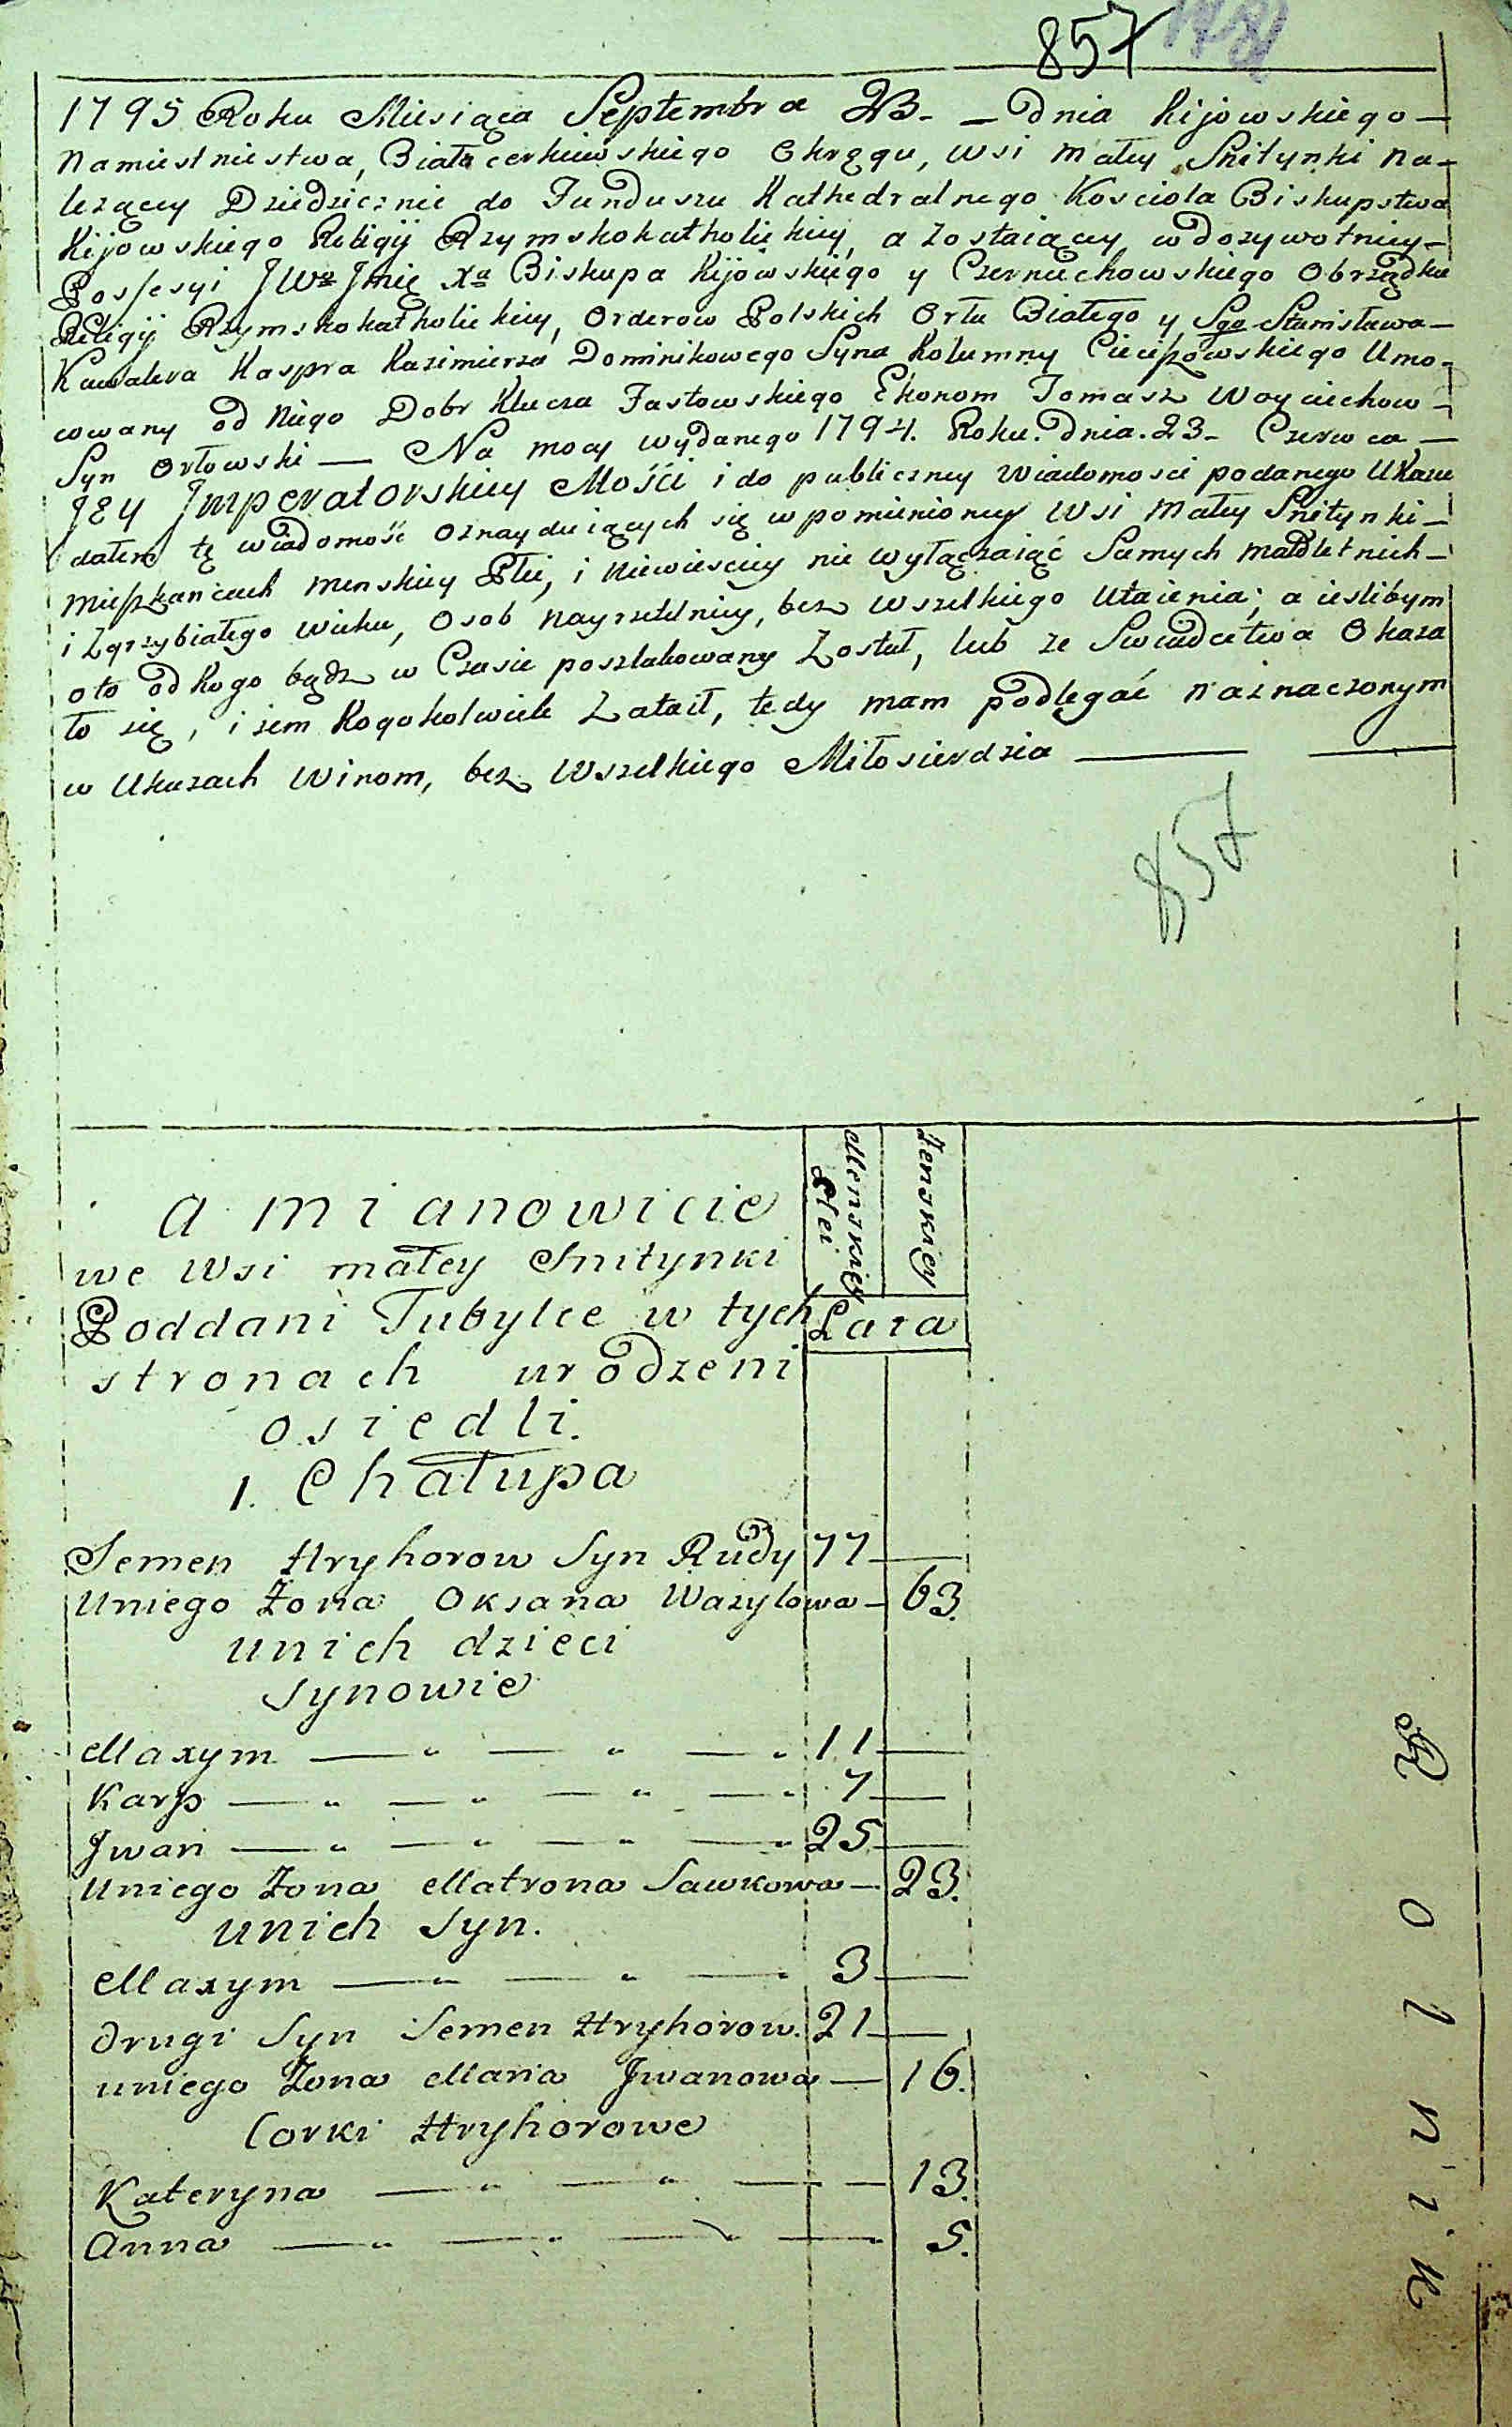 857
1795 Roku Miesiąca Septembra 23 - - Dnia Kijowskiego -
Namiestnictwa, Białocerkiewskiego Okręgu, wsi małey Snitynki na-
leżącey Dziedzicznie do Funduszu Kathedralnego Kosciola Biskupstwa
Kijowskiego Religij Rzymskokatholickiey, a zostaiącey w dożywotniey -
Possesyi JWo Jmię Xa Biskupa Kijowskiego y Czerniechowskiego Obrządku
Religij Rzymskokatholickiey, Orderow Polskich Orła Białego y Sgo Stanisława -
Kawalera Kaspra Kazimierza Dominikowego Syna Kolumny Cieciszowskiego Umo-
cowany od Niego Dobr Klucza Fastowskiego Ekonom Tomasz Woyciechow -
Syn Orłowski — Na mocy wydanego 1794. Roku. Dnia. 23 - Czerwca —
JEY Jmperatorskiey Mości i do publiczney wiadomosci podanego Ukazu
dałem tę wiadomość oznayduiących się w pomienioney Wsi małey Snitynki -
mieszkańcach menskiey Płci, i niewiesciey nie wyłączaiąć Samych małoletnich -
i Zgrzybiałego wieku, Osob nayrzetelniey, bez wszelkiego Utaienia; a ieslibym
oto od kogo bądz w Czasie poszlakowany Został, lub ze Swiadectwa Okaza
ło się, iżem Kogokolwiek Zataił, tedy mam podlegać naznaczonym
w Ukazach Winom, bez Wszelkiego Miłosierdzia —
857
a mianowicie
we wsi małey Snitynki
Poddani Tubylce w tych
stronach urodzeni
osiedli.
Menskiey Płci
Zenskiey
Lata
1. Chałupa
Semen Hryhorow Syn Rudy 77 —
Uniego Żona Oksana Wasylowa - 63.
unich dzieci
synowie
Maxym — " — " — " 11 —
Karp — " — " — " — " 7 —
Jwan — " — " — " — " 25 —
Uniego Żona Matrona Sawkowa — 23.
unich Syn.
Maxym — " — " — " 3 —
drugi Syn Semen Hryhorow. 21 —
uniego Żona Maria Jwanowa — 16.
Corki Hryhorowe
Kateryna — " — " — — 13.
Anna — " — " — " — " 5.
Rolnik